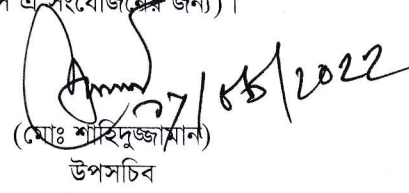 এ সংযোজনের জন্য)।
07/08/2022
(মোঃ শাহিদুজ্জামান)
উপসচিব